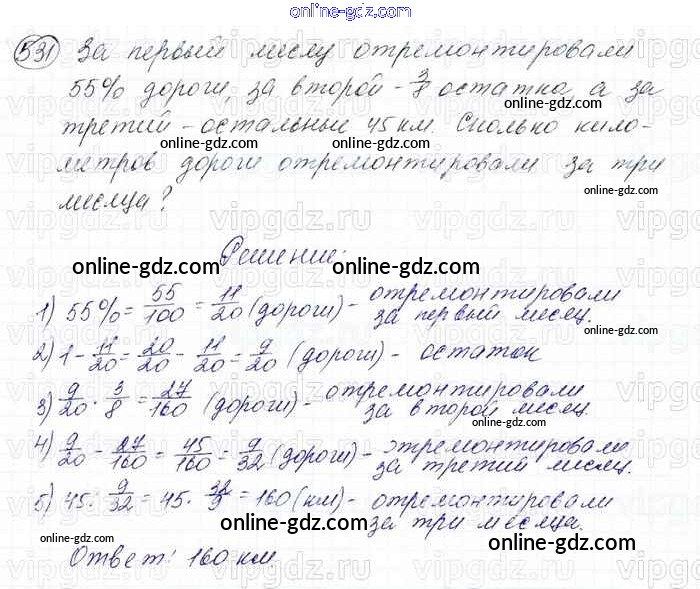 online-gdz.com
531 За первый месяц отремонтировали
55% дороги, за второй - 3/8 остатка, а за
online-gdz.com
третий - остальные 45 км. Сколько кило-
online-gdz.com online-gdz.com
метров дороги отремонтировали за три
online-gdz.com
месяца?
Решение:
online-gdz.com online-gdz.com
1) 55% = 55/100 = 11/20 (дороги) - отремонтировали
за первый месяц.
online-gdz.com
2) 1 - 11/20 = 20/20 - 11/20 = 9/20 (дороги) - остаток
3) 9/20 · 3/8 = 27/160 (дороги) - отремонтировали
за второй месяц.
online-gdz.com
4) 9/20 - 27/160 = 45/160 = 9/32 (дороги) - отремонтировали
за третий месяц.
online-gdz.com online-gdz.com
5) 45 : 9/32 = 45 · 32/9 = 160 (км) - отремонтировали
за три месяца.
online-gdz.com
online-gdz.com online-gdz.com
Ответ: 160 км
online-gdz.com